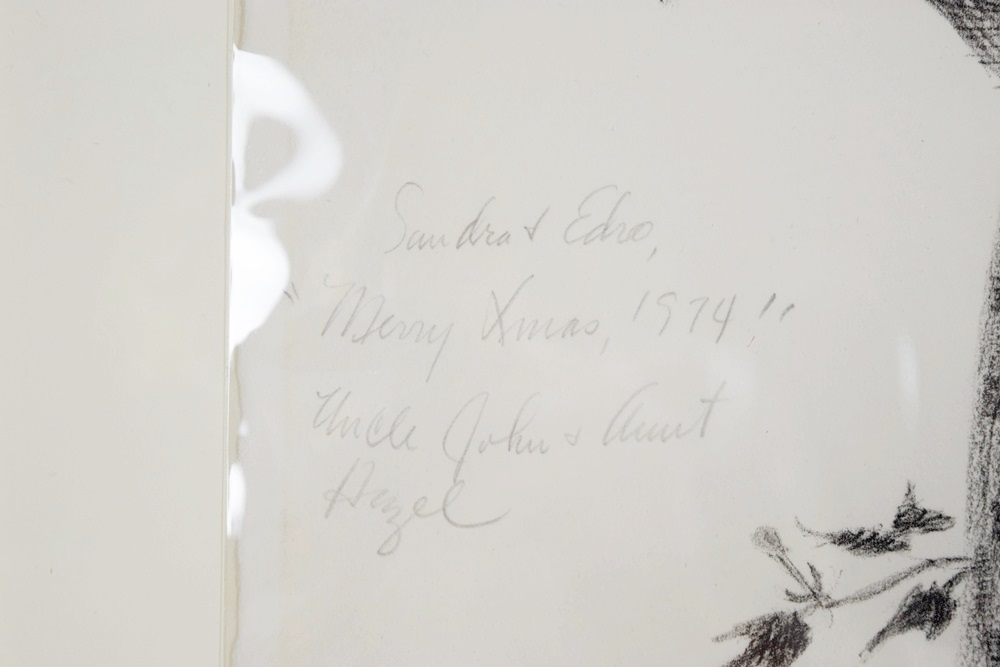 Sandra & Edro,
"Merry Xmas, 1974!"
Uncle John & Aunt
Hazel